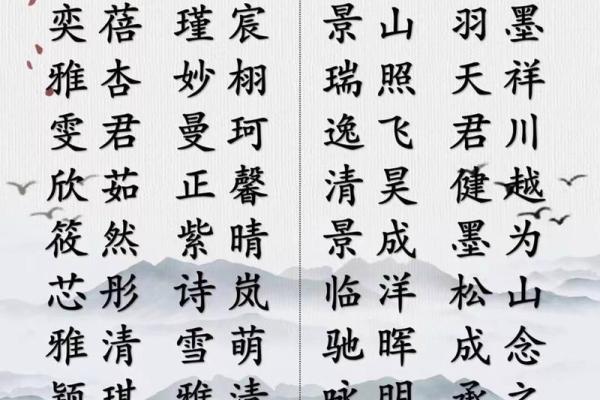 奕蓓 瑾宸 景山 羽墨
雅杏 妙栩 瑞照 天祥
雯君 曼珂 逸飞 君川
欣茹 正馨 清昊 健越
筱然 紫晴 景成 墨为
芯彤 诗岚 临洋 松山
雅清 雪萌 驰晖 成念
颖琪 雅清 咏明 承之